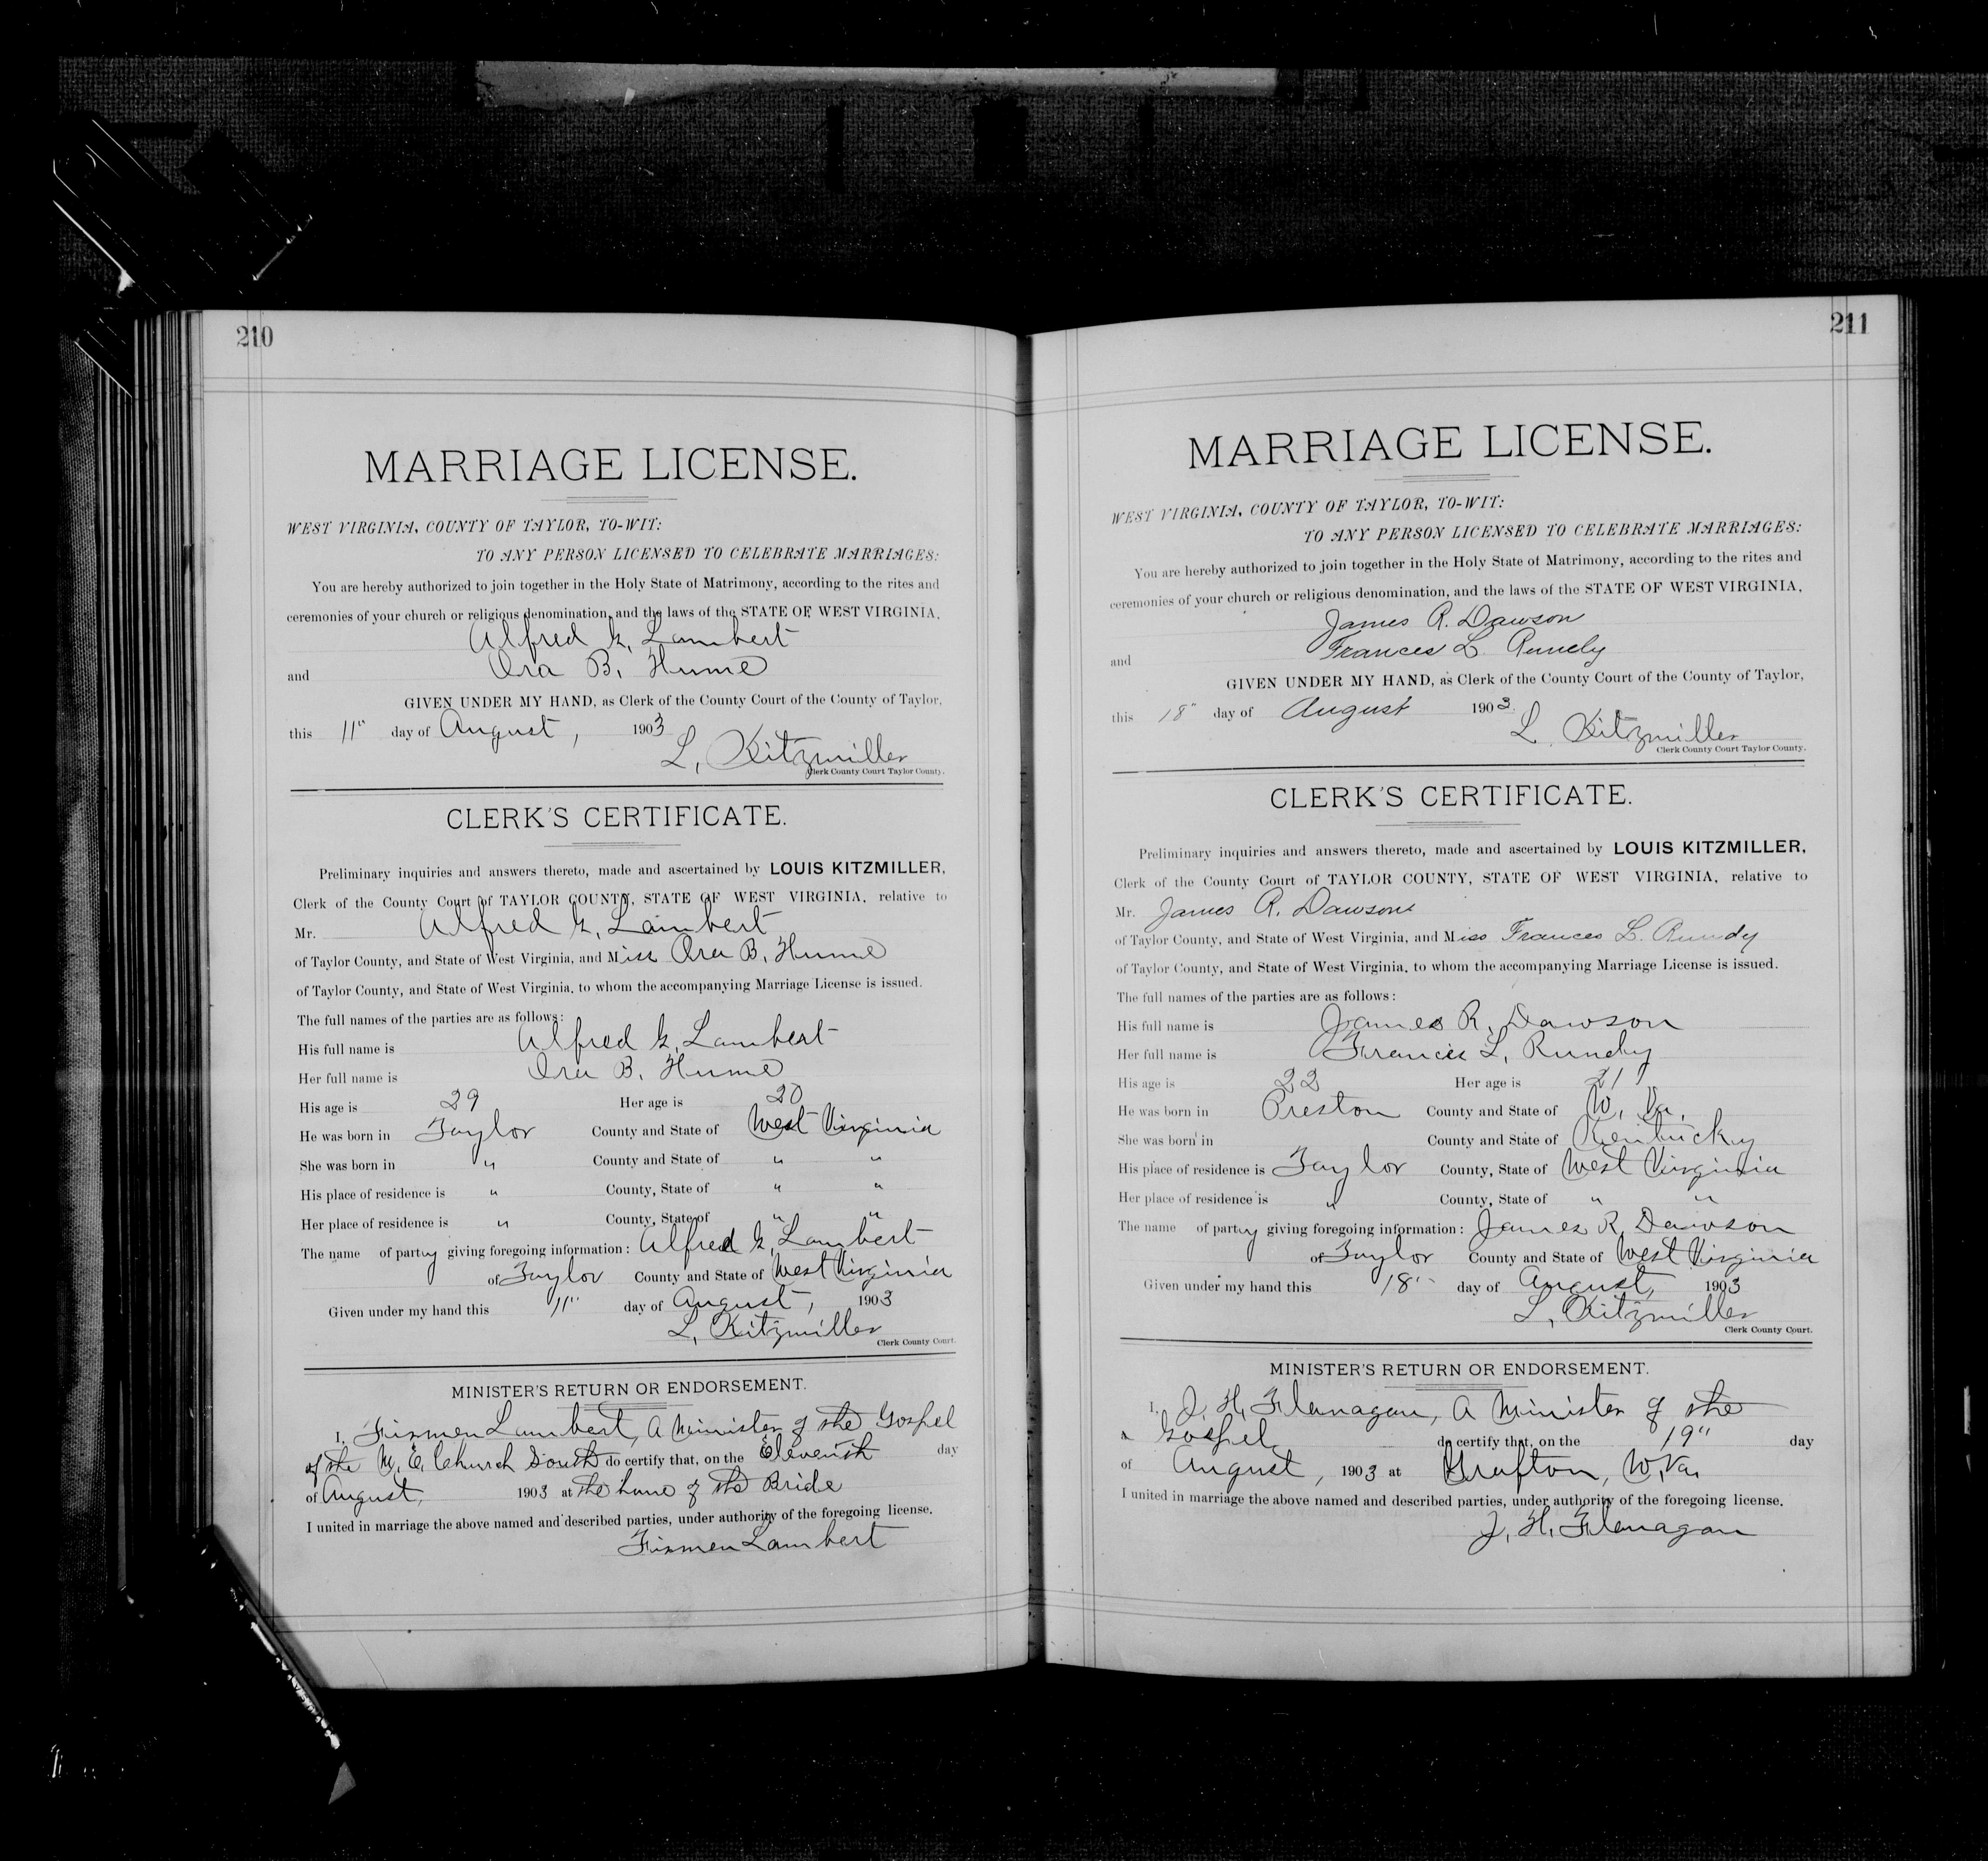 210
MARRIAGE LICENSE.
WEST VIRGINIA, COUNTY OF TAYLOR, TO-WIT:
TO ANY PERSON LICENSED TO CELEBRATE MARRIAGES:
You are hereby authorized to join together in the Holy State of Matrimony, according to the rites and
ceremonies of your church or religious denomination, and the laws of the STATE OF WEST VIRGINIA,
Alfred G. Lambert
and Ora B. Hume
GIVEN UNDER MY HAND, as Clerk of the County Court of the County of Taylor,
this 11" day of August, 1903
L. Kitzmiller
Clerk County Court Taylor County.
CLERK'S CERTIFICATE.
Preliminary inquiries and answers thereto, made and ascertained by LOUIS KITZMILLER,
Clerk of the County Court of TAYLOR COUNTY, STATE OF WEST VIRGINIA, relative to
Mr. Alfred G. Lambert
of Taylor County, and State of West Virginia, and Miss Ora B. Hume
of Taylor County, and State of West Virginia, to whom the accompanying Marriage License is issued.
The full names of the parties are as follows:
His full name is Alfred G. Lambert
Her full name is Ora B. Hume
His age is 29 Her age is 20
He was born in Taylor County and State of West Virginia
She was born in " County and State of " "
His place of residence is " County, State of " "
Her place of residence is " County, State of " "
The name of party giving foregoing information: Alfred G. Lambert
of Taylor County and State of West Virginia
Given under my hand this 11" day of August, 1903
L. Kitzmiller
Clerk County Court.
MINISTER'S RETURN OR ENDORSEMENT.
I, Firmen Lambert, A Minister of the Gospel
of the M. E. Church South do certify that, on the Eleventh day
of August, 1903 at the home of the Bride
I united in marriage the above named and described parties, under authority of the foregoing license.
Firmen Lambert
211
MARRIAGE LICENSE.
WEST VIRGINIA, COUNTY OF TAYLOR, TO-WIT:
TO ANY PERSON LICENSED TO CELEBRATE MARRIAGES:
You are hereby authorized to join together in the Holy State of Matrimony, according to the rites and
ceremonies of your church or religious denomination, and the laws of the STATE OF WEST VIRGINIA,
James R. Dawson
and Frances L. Rundy
GIVEN UNDER MY HAND, as Clerk of the County Court of the County of Taylor,
this 18" day of August 1903
L. Kitzmiller
Clerk County Court Taylor County.
CLERK'S CERTIFICATE.
Preliminary inquiries and answers thereto, made and ascertained by LOUIS KITZMILLER,
Clerk of the County Court of TAYLOR COUNTY, STATE OF WEST VIRGINIA, relative to
Mr. James R. Dawson
of Taylor County, and State of West Virginia, and Miss Frances L. Rundy
of Taylor County, and State of West Virginia, to whom the accompanying Marriage License is issued.
The full names of the parties are as follows:
His full name is James R. Dawson
Her full name is Frances L. Rundy
His age is 22 Her age is 21
He was born in Preston County and State of W. Va.
She was born in County and State of Kentucky
His place of residence is Taylor County, State of West Virginia
Her place of residence is " County, State of " "
The name of party giving foregoing information: James R. Dawson
of Taylor County and State of West Virginia
Given under my hand this 18" day of August, 1903
L. Kitzmiller
Clerk County Court.
MINISTER'S RETURN OR ENDORSEMENT.
I, J. H. Flanagan, A Minister of the
Gospel do certify that, on the 19" day
of August, 1903 at Grafton, W. Va.
I united in marriage the above named and described parties, under authority of the foregoing license.
J. H. Flanagan